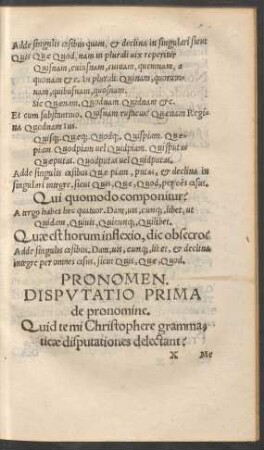 Adde singulis casibus quam, & declina in singulari sicut
Quis Quæ Quod, nam in plurali uix reperitur
Quisnam, cuiusnam, cuinam, quemnam, a
quonam & c. In plurali Quinam, quorum
nam, quibusnam, quosnam.
Sic Quænam, Quodnam Quidnam & c.
Et cum substantiuo, Quisnam rusticus Quænam Regi
na Quodnam Ius.
Quisq;, Quæq;, Quodq;, Quispiam, Quæ
piam Quodpiam uel Quidpiam, Quisputas
Quæputas, Quodputas uel Quidputas,
Adde singulis casibus Quæ piam, putas, & declina in
singulari integre, sicut Quis, Quæ, Quod, per oẽs casus.
Qui quomodo componitur?
A tergo habet hec quatuor, Dam, uis, cunq;, libet, ut
Quidam, Quiuis, Quicunq;, Quilibet.
Quæ est horum inflexio, dic obsecro?
Adde singulis casibus, Dam, uis, cunq;, libet, & declina
integre per omnes casus, sicut Quis, Quæ, Quod.
PRONOMEN.
DISPVTATIO PRIMA
de pronomine.
Quid te mi Christophere gramma
ticæ disputationes delectant?
X Me